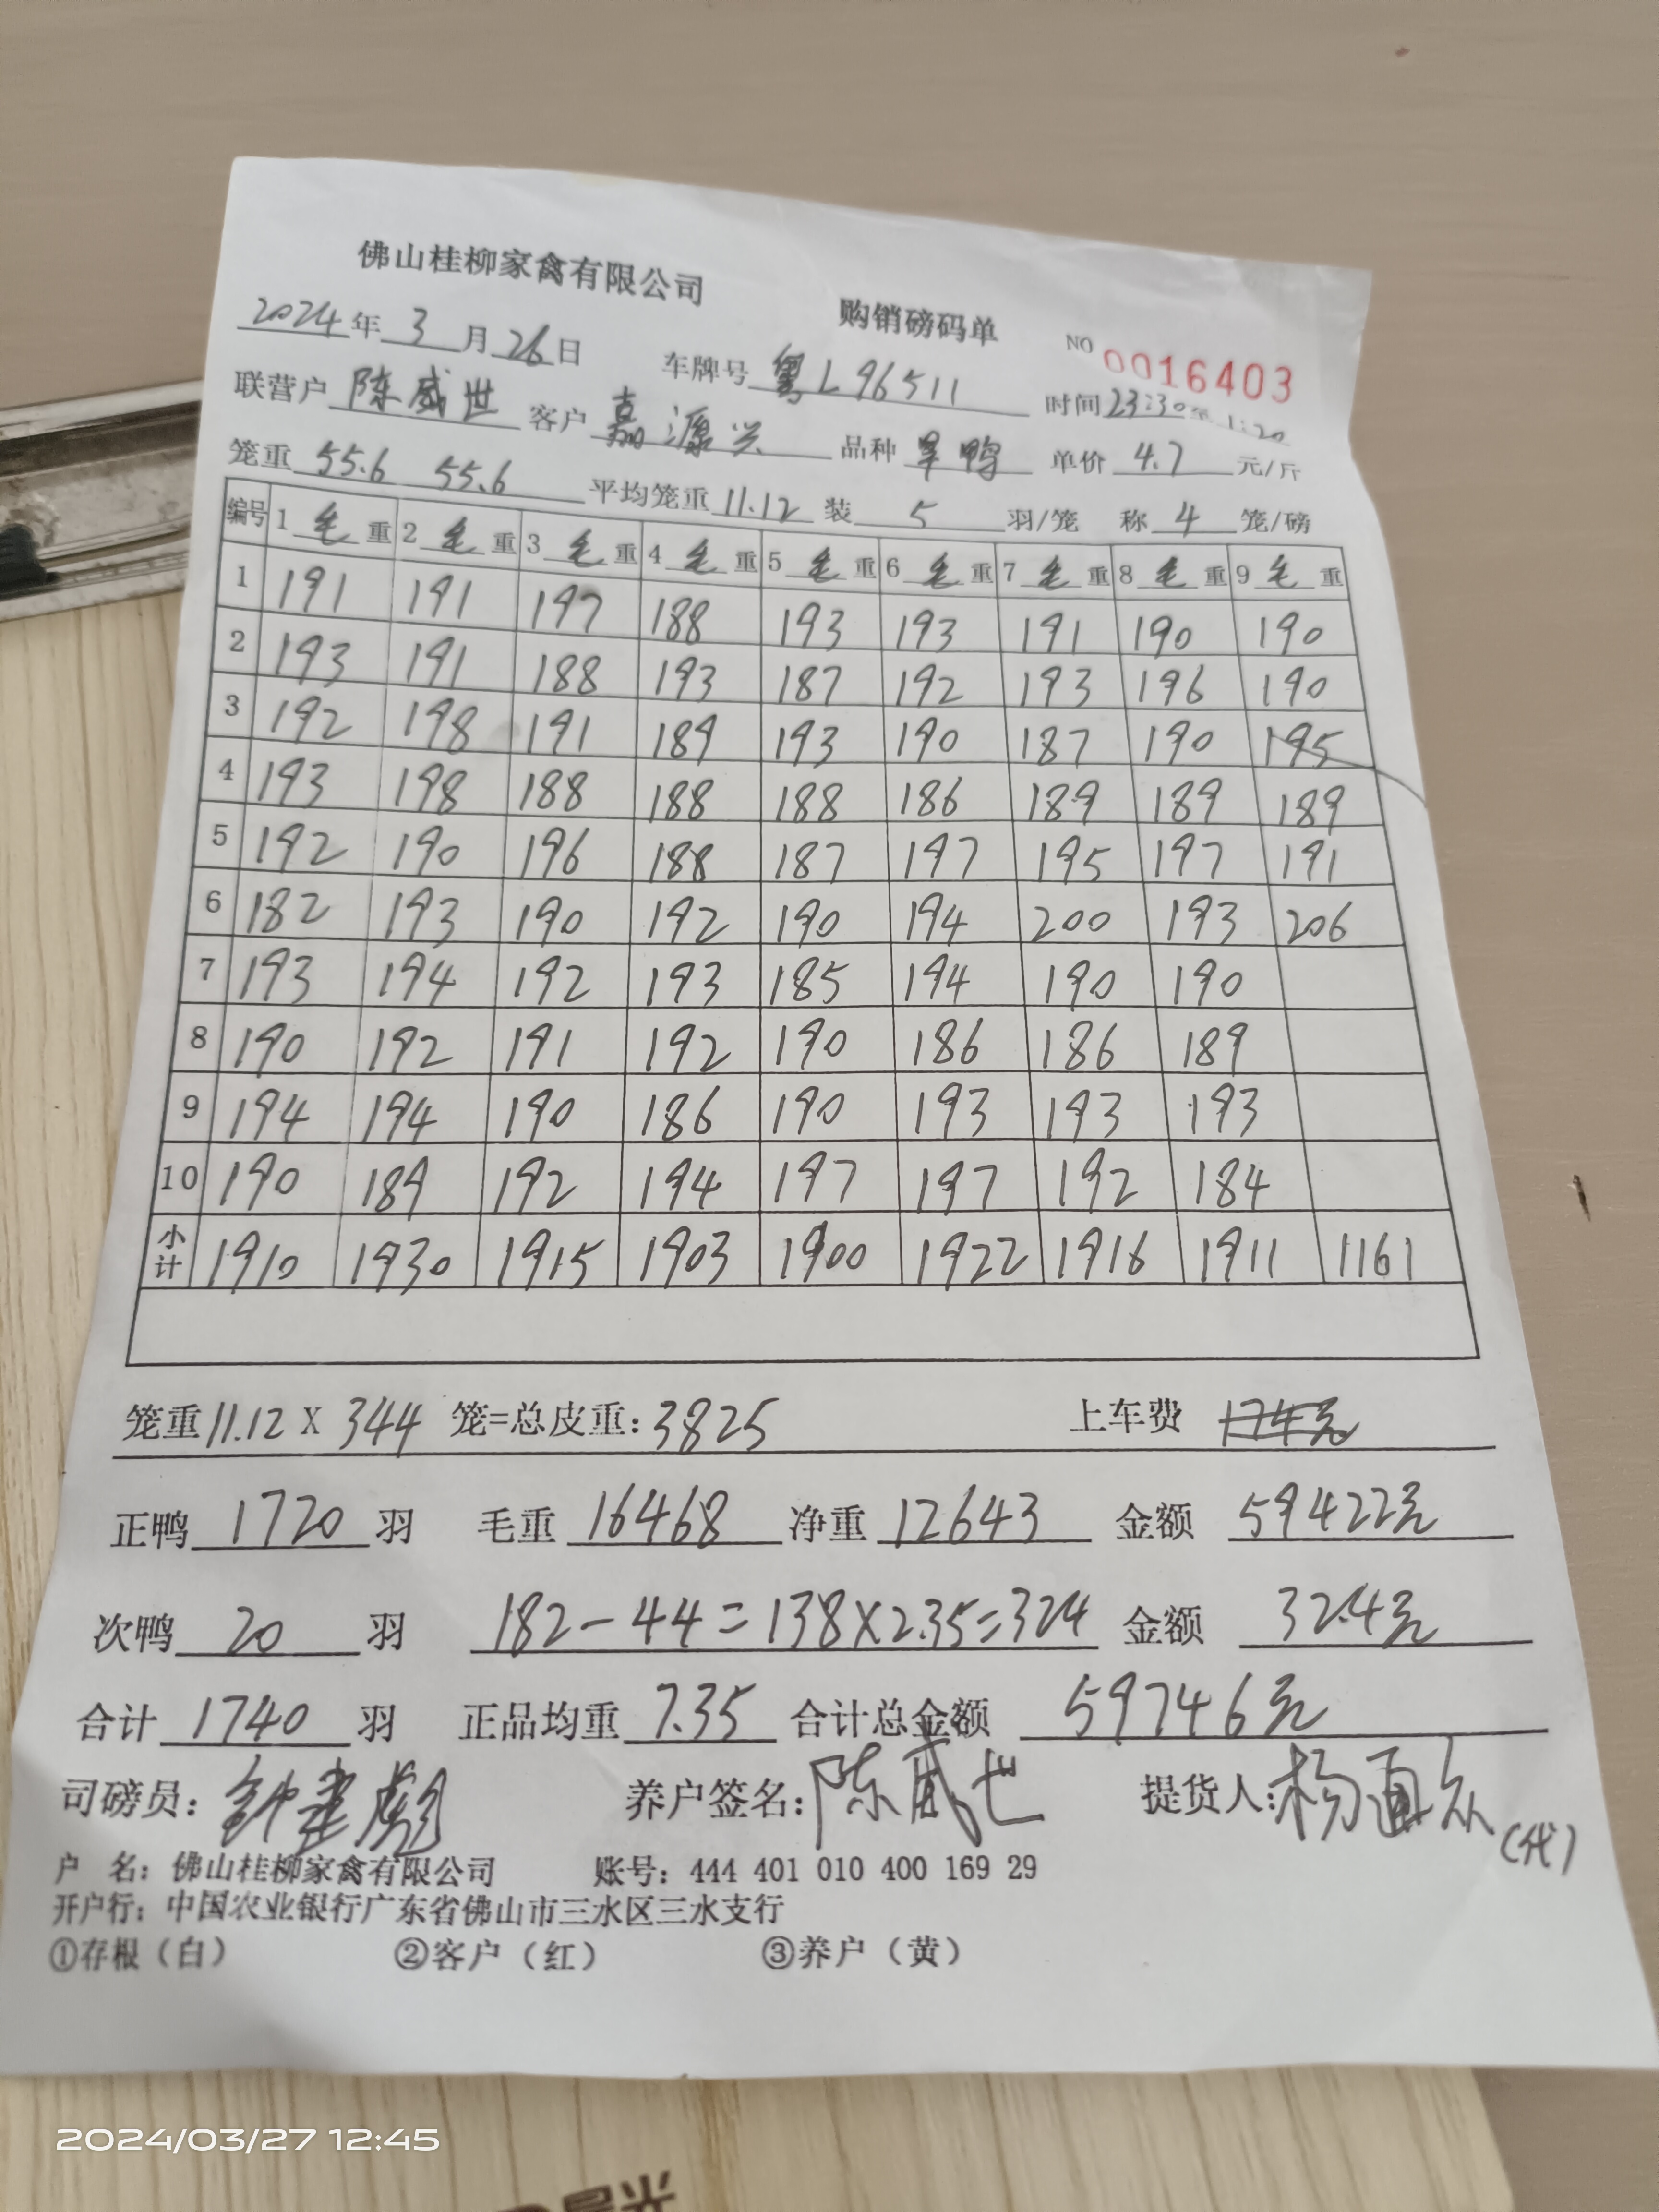 佛山桂柳家禽有限公司 购销磅码单 NO 0016403
2024年3月26日 车牌号 粤L96511 时间 23:30至1:20
联营户 陈威世 客户 嘉源兴 品种 旱鸭 单价 4.7 元/斤
笼重 55.6 55.6 平均笼重 11.12 装 5 羽/笼 称 4 笼/磅
编号 1 毛 重 2 毛 重 3 毛 重 4 毛 重 5 毛 重 6 毛 重 7 毛 重 8 毛 重 9 毛 重
1 191 191 197 188 193 193 191 190 190
2 193 191 188 193 187 192 193 196 190
3 192 198 191 189 193 190 187 190 195
4 193 198 188 188 188 186 189 189 189
5 192 190 196 188 187 197 195 197 191
6 182 193 190 192 190 194 200 193 206
7 193 194 192 193 185 194 190 190
8 190 192 191 192 190 186 186 189
9 194 194 190 186 190 193 193 193
10 190 189 192 194 197 197 192 184
小计 1910 1930 1915 1903 1900 1922 1916 1911 1161
笼重 11.12 X 344 笼=总皮重: 3825 上车费 174元
正鸭 1720 羽 毛重 16468 净重 12643 金额 59422元
次鸭 20 羽 182-44=138×2.35=324 金额 324元
合计 1740 羽 正品均重 7.35 合计总金额 59746元
司磅员: 钟 彪 养户签名: 陈威世 提货人: 杨通 (代)
户 名: 佛山桂柳家禽有限公司 账号: 444 401 010 400 169 29
开户行: 中国农业银行广东省佛山市三水区三水支行
①存根(白) ②客户(红) ③养户(黄)
2024/03/27 12:45